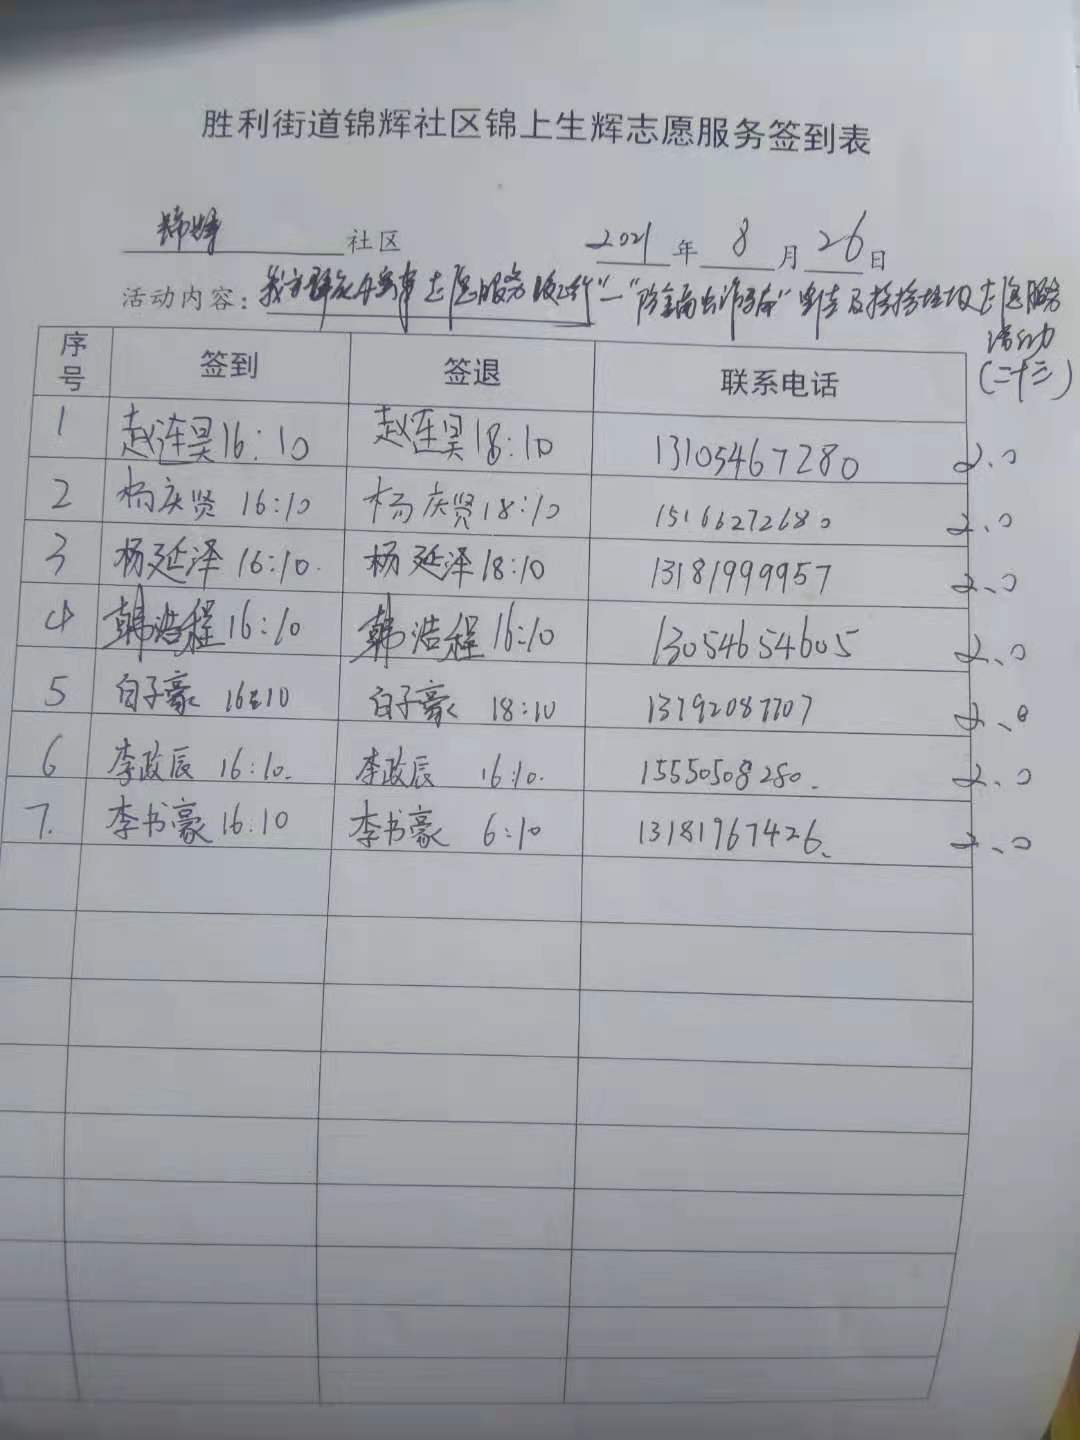 胜利街道锦辉社区锦上生辉志愿服务签到表
锦辉 社区 2021 年 8 月 26 日
活动内容：我为群众办实事志愿服务 "防金融 诈骗" 宣传及捡拾垃圾志愿服务
活动
(二十三)
序号 签到 签退 联系电话
1 赵连昊16:10 赵连昊18:10 13105467280 2.0
2 杨庆贤 16:10 杨庆贤18:10 15166272680 2.0
3 杨延泽 16:10. 杨延泽18:10 13181999957 2.0
4 韩浩程16:10 韩浩程16:10 13054654605 2.0
5 白子豪 16:10 白子豪 18:10 13792087707 2.0
6 李政辰 16:10. 李政辰 16:10. 15550508280. 2.0
7. 李书豪16.10 李书豪 6:10 13181967426、 2.0